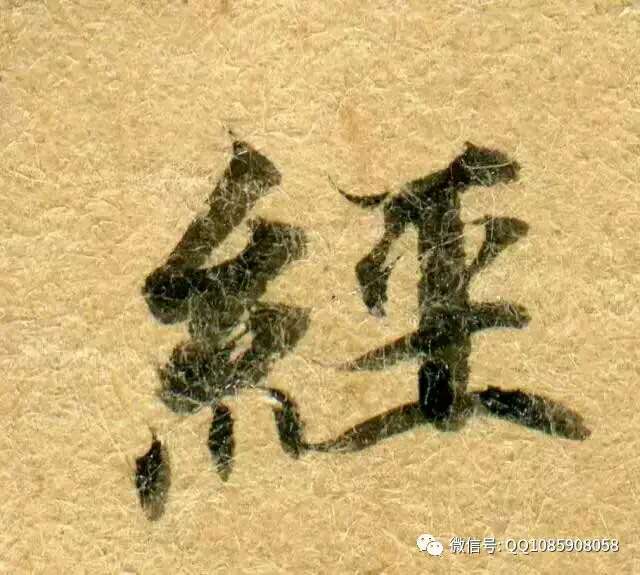 經
微信号: QQ1085908058